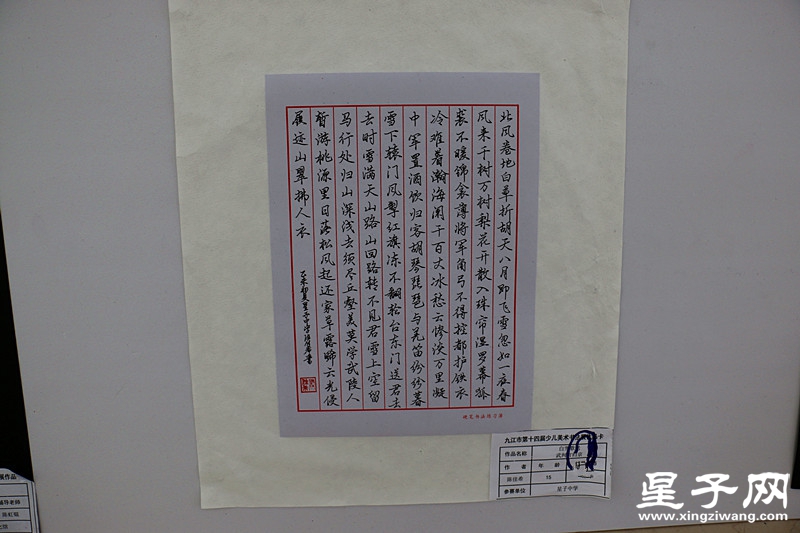 北风卷地白草折胡天八月即飞雪忽如一夜春
风来千树万树梨花开散入珠帘湿罗幕狐
裘不暖锦衾薄将军角弓不得控都护铁衣
冷难着瀚海阑干百丈冰愁云惨淡万里凝
中军置酒饮归客胡琴琵琶与羌笛纷纷暮
雪下辕门风掣红旗冻不翻轮台东门送君去
去时雪满天山路山回路转不见君雪上空留
马行处归山深浅去须尽丘壑美莫学武陵人
暂游桃源里日落松风起还家草露晞云光侵
履迹山翠拂人衣
硬笔书法练习
九江市第十四届少儿美术书法
卡
作品名称
作者
年龄
15
参赛单位
星子中学
星子网
www.xingziwang.com